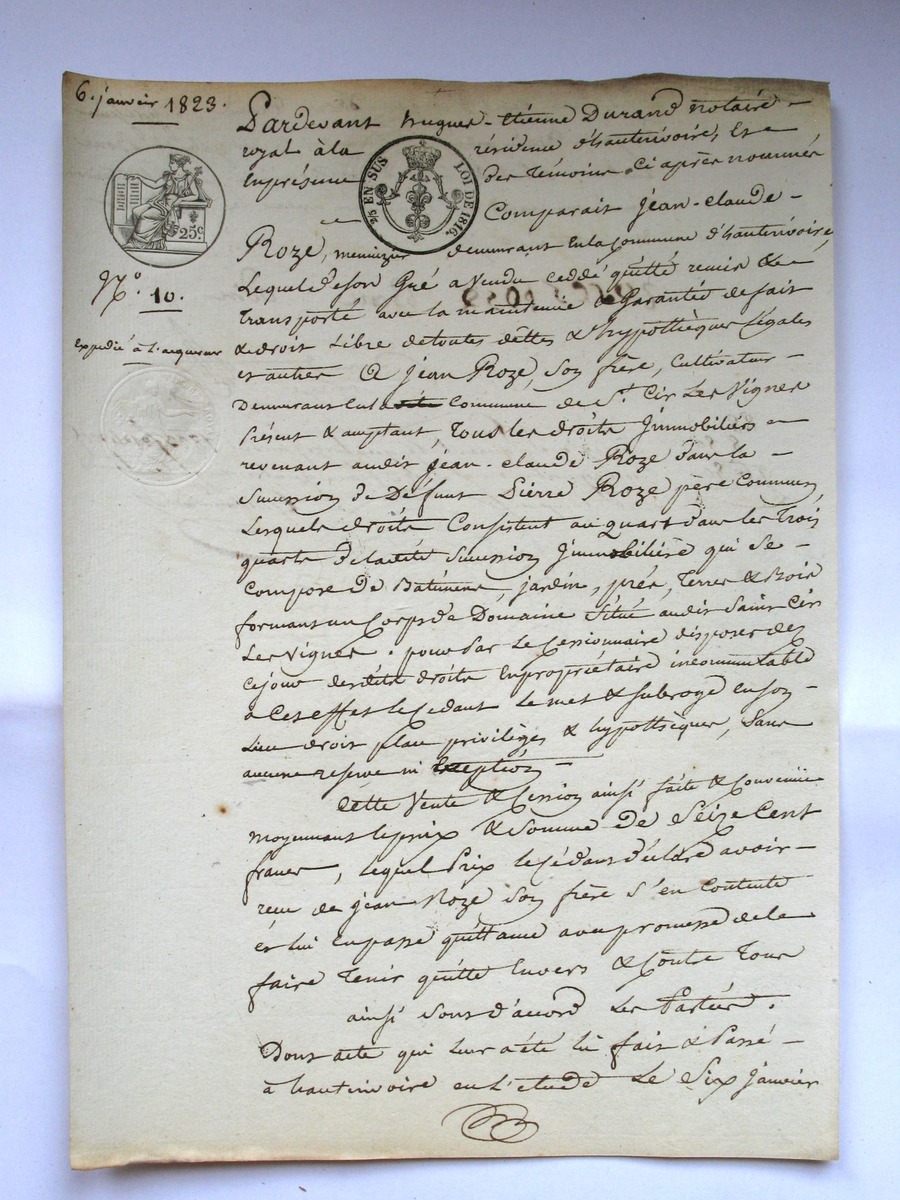 6. janvier 1823.
Pardevant hugues-étienne Durand notaire
royal à la résidence d'hauterivoire, Et
En présence des Témoins Ci après nommés
2/5 EN SUS LOI DE 1816.
Comparait jean-claude
25c
Roze, menuizier demeurant En la Commune d'hauterivoire,
Lequel de son Gré a Vendu ceddé quitté remis &
N.o 10.
Transporté avec la maintenue & Garantée de fait
& de droit Libre de toutes dettes & d'hypothèques Légales
Expedié à l'acquereur
et autres à jean Roze, Son frère, Cultivateur
Demeurant En la Commune de St. Cir Les Vignes
Présent & acceptant, Tous les droits Immobiliers
revenant audit jean-claude Roze dans la
Succession de Défunt Pierre Roze père Commun
Lesquels droits Consistent au quart dans les Trois
quarts de la dité Succession Immobilière qui Se
Compose De Batiments, jardin, prés, Terres & Bois
formant un Corps de Domaine Situé audit Saint Cir
Les Vignes. pour Par le Cessionnaire disposer dez
Ce jour desdits droits En propriétaire incommutable
à Cet effet le Cédant Le met & subroge en son
Lieu droit place privilèges & hypothèques, Sans
aucune reserve ni Exception
Cette Vente & Cession ainsi faite & Convenue
moyennant le prix & Somme De Seize Cent
francs, lequel Prix le Cédant déclare avoir
reçu de jean Roze Son frère S'en Contente
et lui En passe quittance avec promesse de le
faire Tenir quitte Envers & Contre Tous
ainsi Sont d'accord Les Parties.
Dont acte qui leur a été lu fait & Passé
à hauterivoire en l'etude Le Six janvier